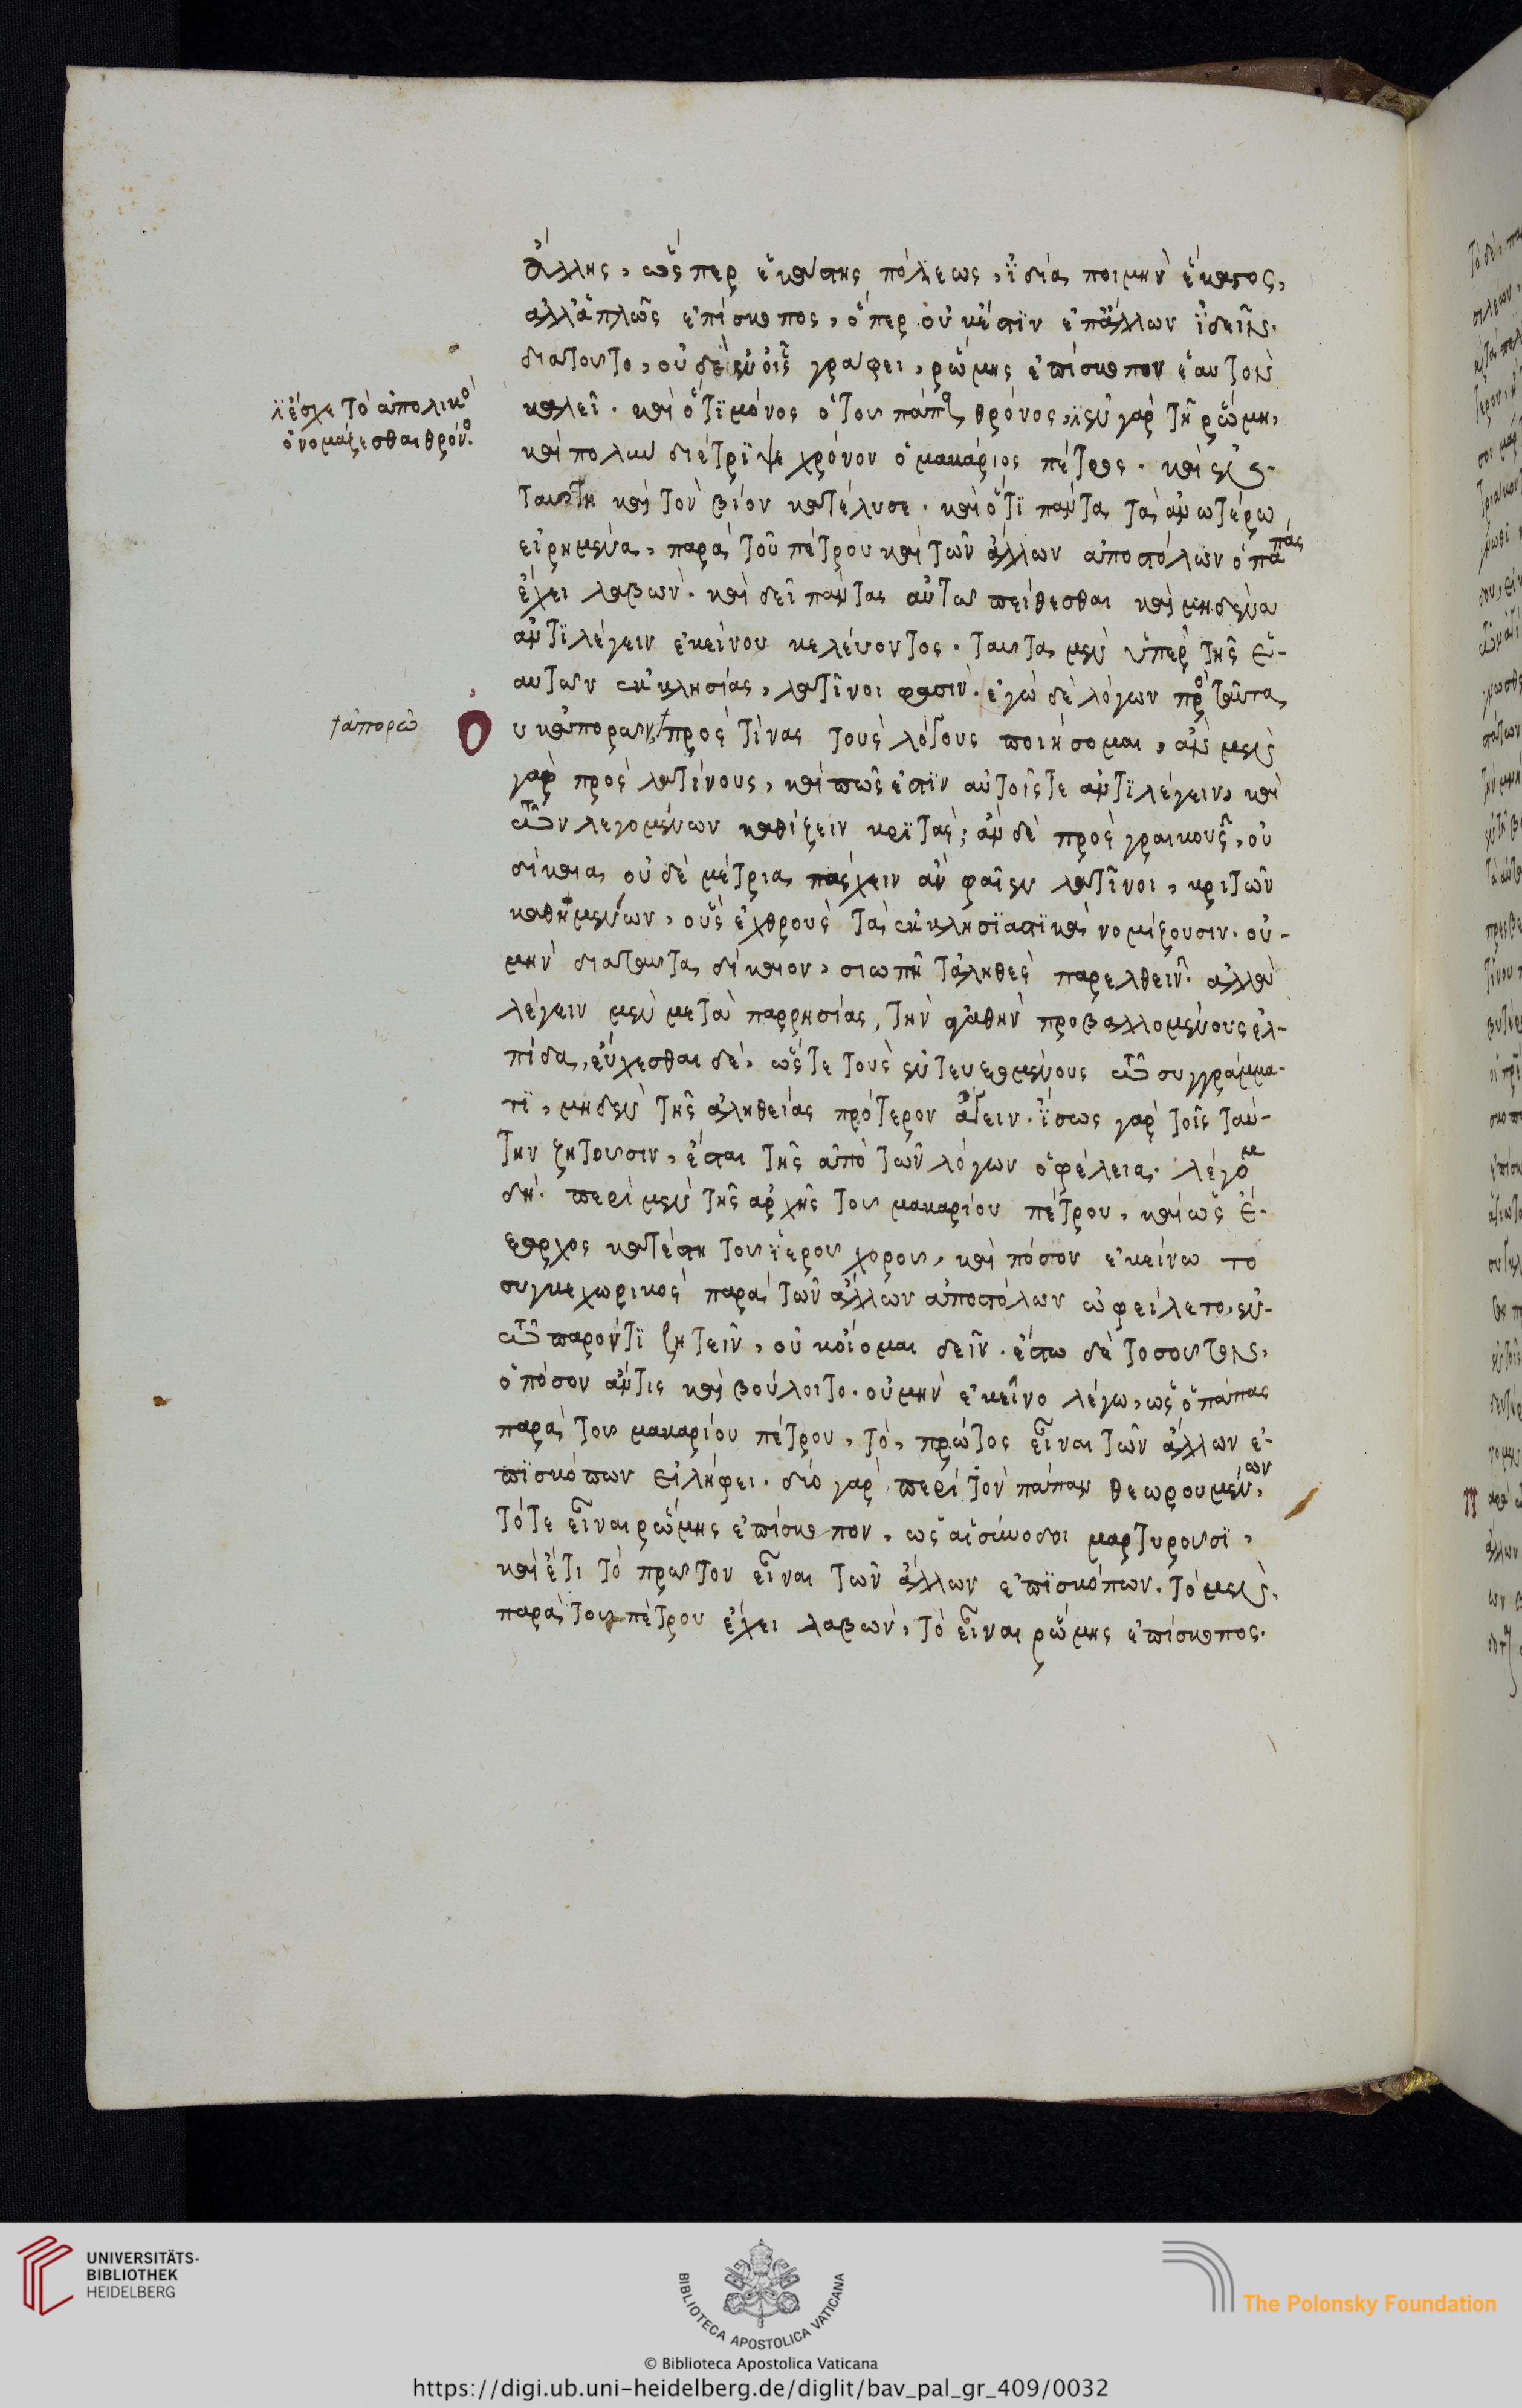 ἄλλης, ὥσπερ ἑκάστης πόλεως, ἰδία ποιμὴν ἕκαστος,
ἀλλ' ἁπλῶς ἐπίσκοπος, ὅπερ οὐκ ἔστιν ἐπ' ἄλλων ἰδεῖν.
διατοῦτο, οὐδὲ ἐν οἷς γράφει, ῥώμης ἐπίσκοπον ἑαυτὸν
καλεῖ. καὶ ὅτι μόνος ὁ τοῦ πάπα θρόνος, ἐν γὰρ τῆ ῥώμη,
ἔσχε τὸ ἀποστολικὸ
ὀνομάζεσθαι θρόνο.
καὶ πολὺν διέτριψε χρόνον ὁ μακάριος πέτρος. καὶ ἐν
ταύτη καὶ τὸν βίον κατέλυσε. καὶ ὅτι πάντα τὰ ἀνωτέρω
εἰρημένα, παρὰ τοῦ πέτρου καὶ τῶν ἄλλων ἀποστόλων ὁ πάπας
ἔχει λαβών. καὶ δεῖ πάντας αὐτῶ πείθεσθαι καὶ μηδένα
ἀντιλέγειν ἐκείνου κελεύοντος. ταῦτα μὲν ὑπὲρ τῆς ἑ-
αυτῶν ἐκκλησίας, λατῖνοι φασίν. ἐγὼ δὲ λόγων πρὸ ταῦτα
†ἀπορῶ
Ουκ ἀπορῶν, †πρὸς τίνας τοὺς λόγους ποιήσομαι, ἂν μὲν
γὰρ πρὸς λατίνους, καὶ πῶς ἔστιν αὐτοῖς τε ἀντιλέγειν, καὶ
τῶν λεγομένων καθίζειν κριτάς; ἂν δὲ πρὸς γραικοὺς, οὐ
δίκαια οὐδὲ μέτρια πάσχειν ἂν φαῖεν λατῖνοι, κριτῶν
καθημένων, οὓς ἐχθροὺς τὰ ἐκκλησιαστικὰ νομίζουσιν. οὐ-
μὴν διαταῦτα δίκαιον, σιωπῆ τἀληθὲς παρελθεῖν. ἀλλὰ
λέγειν μὲν μετὰ παρρησίας, τὴν ἀγαθὴν προβαλλομένους ἐλ-
πίδα, εὔχεσθαι δὲ, ὥστε τοὺς ἐντευξομένους τῶ συγγράμμα-
τι, μηδὲν τῆς ἀληθείας πρότερον ἄγειν. ἴσως γὰρ τοῖς ταύ-
την ζητοῦσιν, ἔσται τῆς ἀπὸ τῶν λόγων ὀφέλεια. λέγομε
δή. περὶ μὲν τῆς ἀρχῆς τοῦ μακαρίου πέτρου, καὶ ὡς ἔ-
ξαρχος κατέστη τοῦ ἱεροῦ χοροῦ, καὶ πόσον ἐκείνω τὸ
συγκεχωρικὸς παρὰ τῶν ἄλλων ἀποστόλων ὠφείλετο, ἐν
τῶ παρόντι ζητεῖν, οὐκ οἴομαι δεῖν. ἔστω δὲ τοσοῦτον,
ὁπόσον ἄν τις καὶ βούλοιτο. οὐμὴν ἐκεῖνο λέγω, ὡς ὁ πάπας
παρὰ τοῦ μακαρίου πέτρου, τὸ, πρῶτος εἶναι τῶν ἄλλων ἐ-
πισκόπων εἰλήφει. δύο γὰρ περὶ τὸν πάπαν θεωρουμένων,
τό τε εἶναι ῥώμης ἐπίσκοπον, ὡς αἱ σύνοδοι μαρτυροῦσι,
καὶ ἔτι τὸ πρῶτον εἶναι τῶν ἄλλων ἐπισκόπων. τὸ μὲν,
παρὰ τοῦ πέτρου ἔχει λαβὼν, τὸ εἶναι ῥώμης ἐπίσκοπος.
UNIVERSITÄTS-
BIBLIOTHEK
HEIDELBERG
BIBLIOTECA APOSTOLICA VATICANA
The Polonsky Foundation
© Biblioteca Apostolica Vaticana
https://digi.ub.uni-heidelberg.de/diglit/bav_pal_gr_409/0032